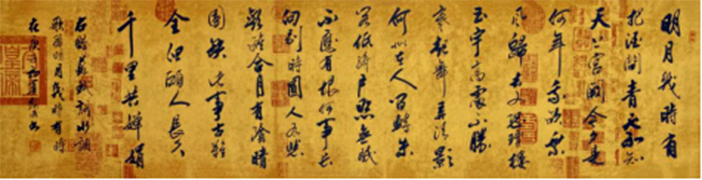 明月幾時有
把酒問青天不知
天上宮闕今夕是
何年我欲乘
風歸去又恐瓊樓
玉宇高處不勝
寒起舞弄清影
何似在人間轉朱
閣低綺戶照無眠
不應有恨何事長
向別時圓人有悲
歡離合月有陰晴
圓缺此事古難
全但願人長久
千里共嬋娟
右錄蘇軾詞水調
歌頭明月幾時有時
在庚寅